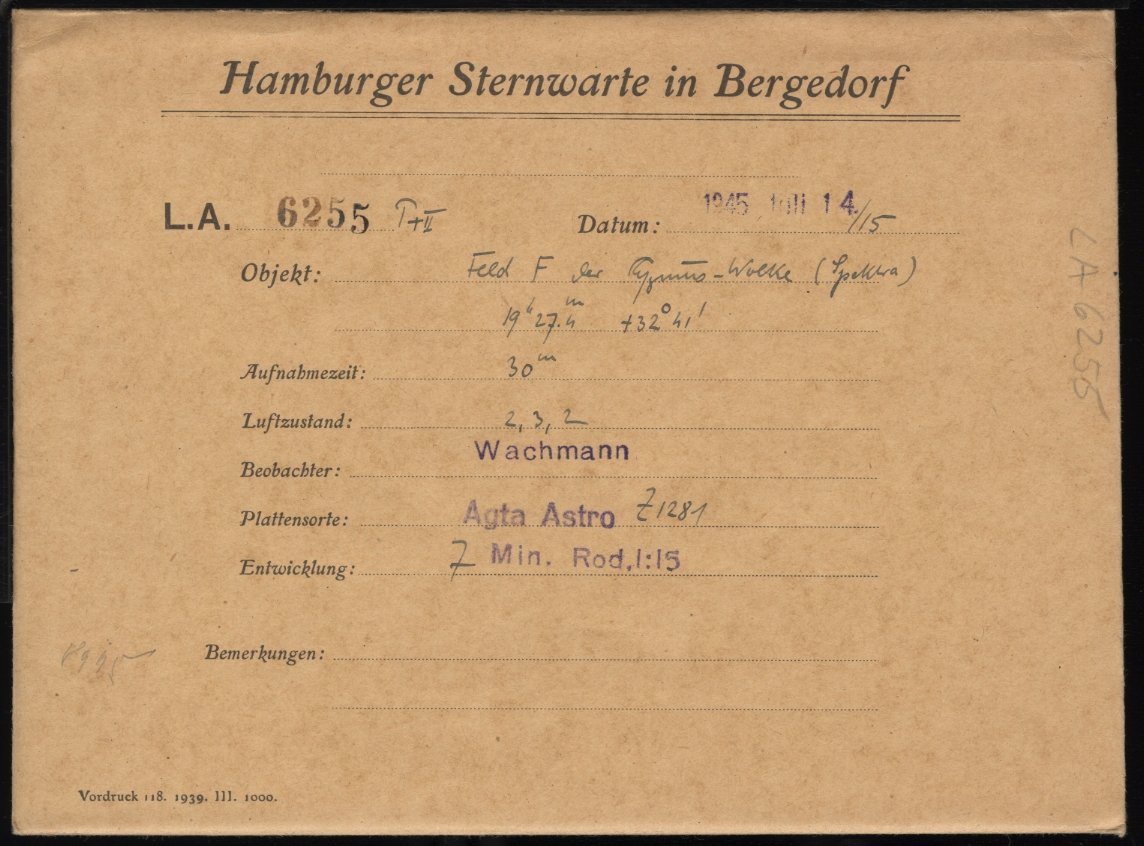 Hamburger Sternwarte in Bergedorf
L.A. 6255 I+II Datum: 1945 Juli 14./15
Objekt: Feld F der Cygnus-Wolke (Spektra)
19h27.4m +32°41'
Aufnahmezeit: 30m
Luftzustand: 2, 3, 2
Beobachter: Wachmann
Plattensorte: Agfa Astro Z1281
Entwicklung: 7 Min. Rod.1:15
Bemerkungen:
Vordruck 118. 1939. III. 1000.
LA 6255